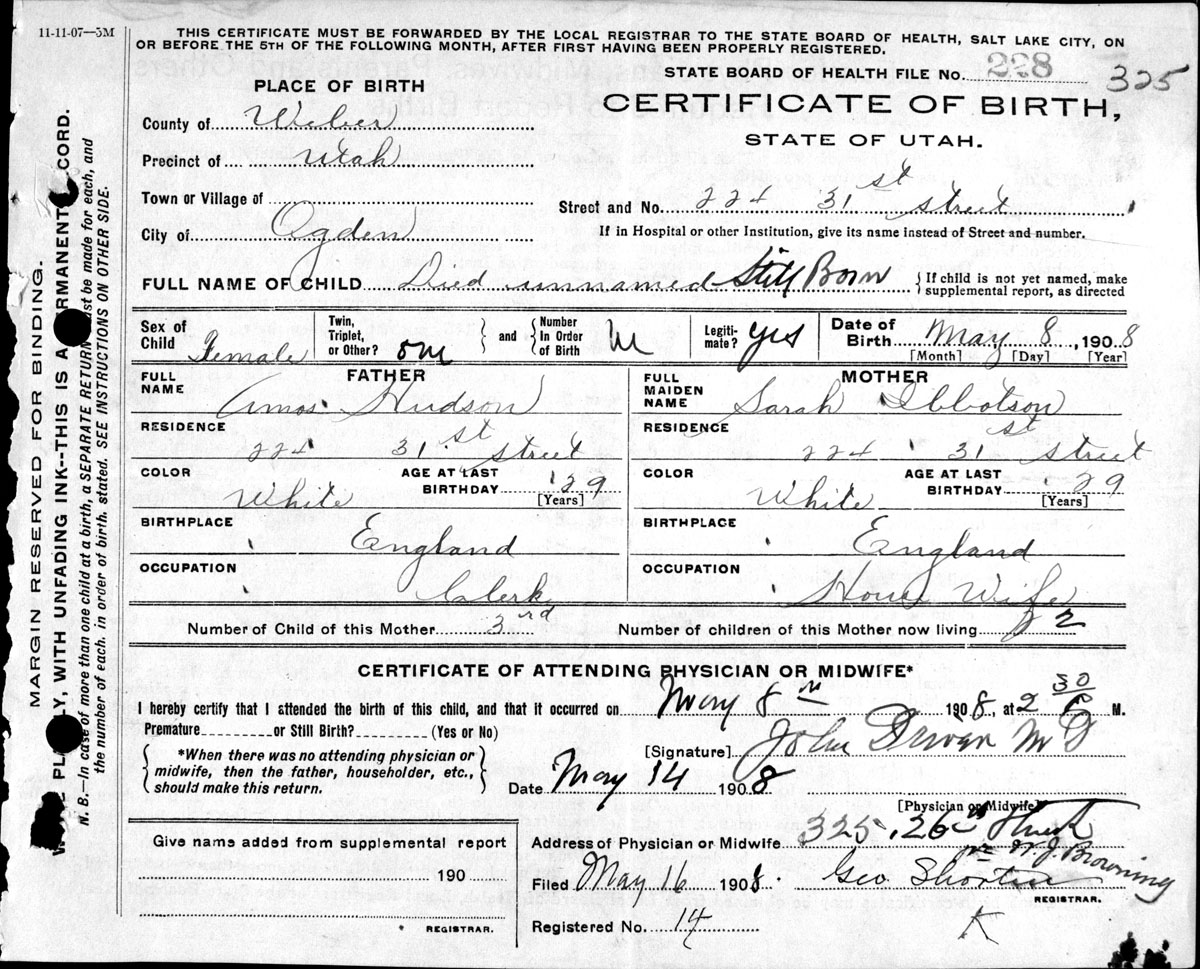 11-11-07—5M
THIS CERTIFICATE MUST BE FORWARDED BY THE LOCAL REGISTRAR TO THE STATE BOARD OF HEALTH, SALT LAKE CITY, ON
OR BEFORE THE 5TH OF THE FOLLOWING MONTH, AFTER FIRST HAVING BEEN PROPERLY REGISTERED.
STATE BOARD OF HEALTH FILE No. 228 325
PLACE OF BIRTH
CERTIFICATE OF BIRTH,
STATE OF UTAH.
County of Weber
Precinct of Utah
Town or Village of
Street and No. 224 31st Street
City of Ogden
If in Hospital or other Institution, give its name instead of Street and number.
FULL NAME OF CHILD Died unnamed Still Born { If child is not yet named, make
supplemental report, as directed
Sex of Child Female
Twin, Triplet, or Other? one } and { Number In Order of Birth
Legiti-mate? yes
Date of Birth May 8, 1908
[Month] [Day] [Year]
FATHER
FULL NAME Amos Hudson
RESIDENCE 224 31st Street
COLOR White
AGE AT LAST BIRTHDAY 29 [Years]
BIRTHPLACE England
OCCUPATION Clerk
MOTHER
FULL MAIDEN NAME Sarah Ibbotson
RESIDENCE 224 31st Street
COLOR White
AGE AT LAST BIRTHDAY 29 [Years]
BIRTHPLACE England
OCCUPATION House Wife
Number of Child of this Mother 3rd
Number of children of this Mother now living 2
CERTIFICATE OF ATTENDING PHYSICIAN OR MIDWIFE*
I hereby certify that I attended the birth of this child, and that it occurred on May 8 1908, at 2 30 M.
Premature or Still Birth? (Yes or No)
{ *When there was no attending physician or
midwife, then the father, householder, etc.,
should make this return. }
[Signature] John Driver MD
Date May 14 1908
[Physician or Midwife]
Address of Physician or Midwife 325, 26 Street
Give name added from supplemental report
190
REGISTRAR.
Filed May 16 1908. Geo Shorten
W. J. Browning
REGISTRAR.
Registered No. 14
K
MARGIN RESERVED FOR BINDING.
PLY, WITH UNFADING INK--THIS IS A RMANENT CORD.
N. B.—In case of more than one child at a birth, a SEPARATE RETURN st be made for each, and
the number of each. in order of birth. stated. SEE INSTRUCTIONS ON OTHER SIDE.